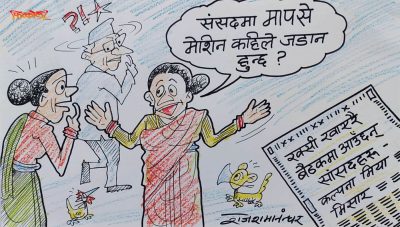 संसदमा मापसे
मेशिन कहिले जडान
हुन्छ ?
रक्सी खाएरै
बैठकमा आउँछन्
सांसदहरू -
कल्पना मिया
मिसार